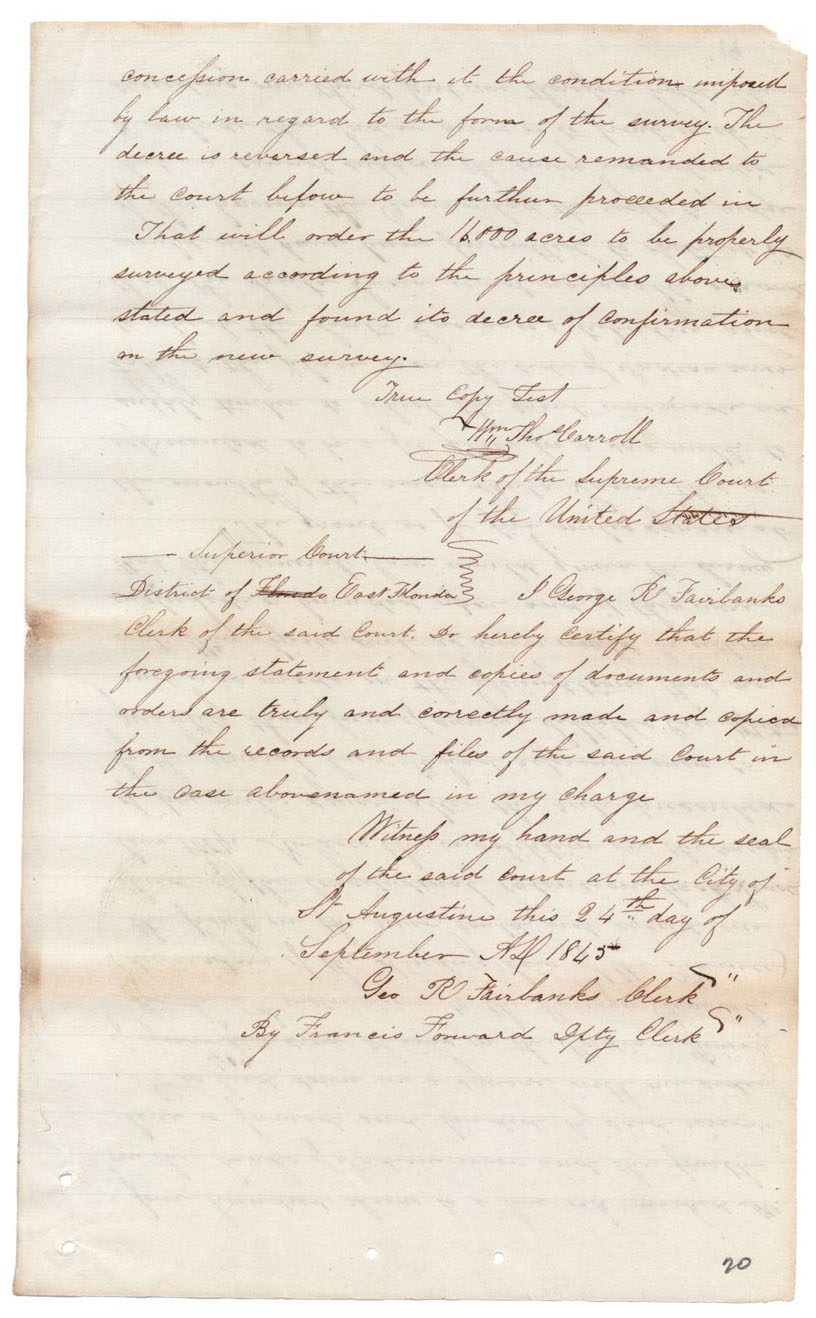 concession carried with it the condition imposed
by law in regard to the form of the survey. The
decree is reversed and the cause remanded to
the court below to be further proceeded in
That will order the 16.000 acres to be properly
surveyed according to the principles above
stated and found its decree of confirmation
on the new survey.
True Copy Test
Wm Thos Carroll
Clerk of the Supreme Court
of the United States
Superior Court
District of East Florida I George R Fairbanks
Clerk of the said Court. Do hereby certify that the
foregoing statement and copies of documents and
orders are truly and correctly made and copied
from the records and files of the said Court in
the case abovenamed in my charge
Witness my hand and the seal
of the said court at the City of
St Augustine this 24th day of
September AD 1845
Geo R Fairbanks Clerk "
By Francis Forward Dpty Clerk "
20